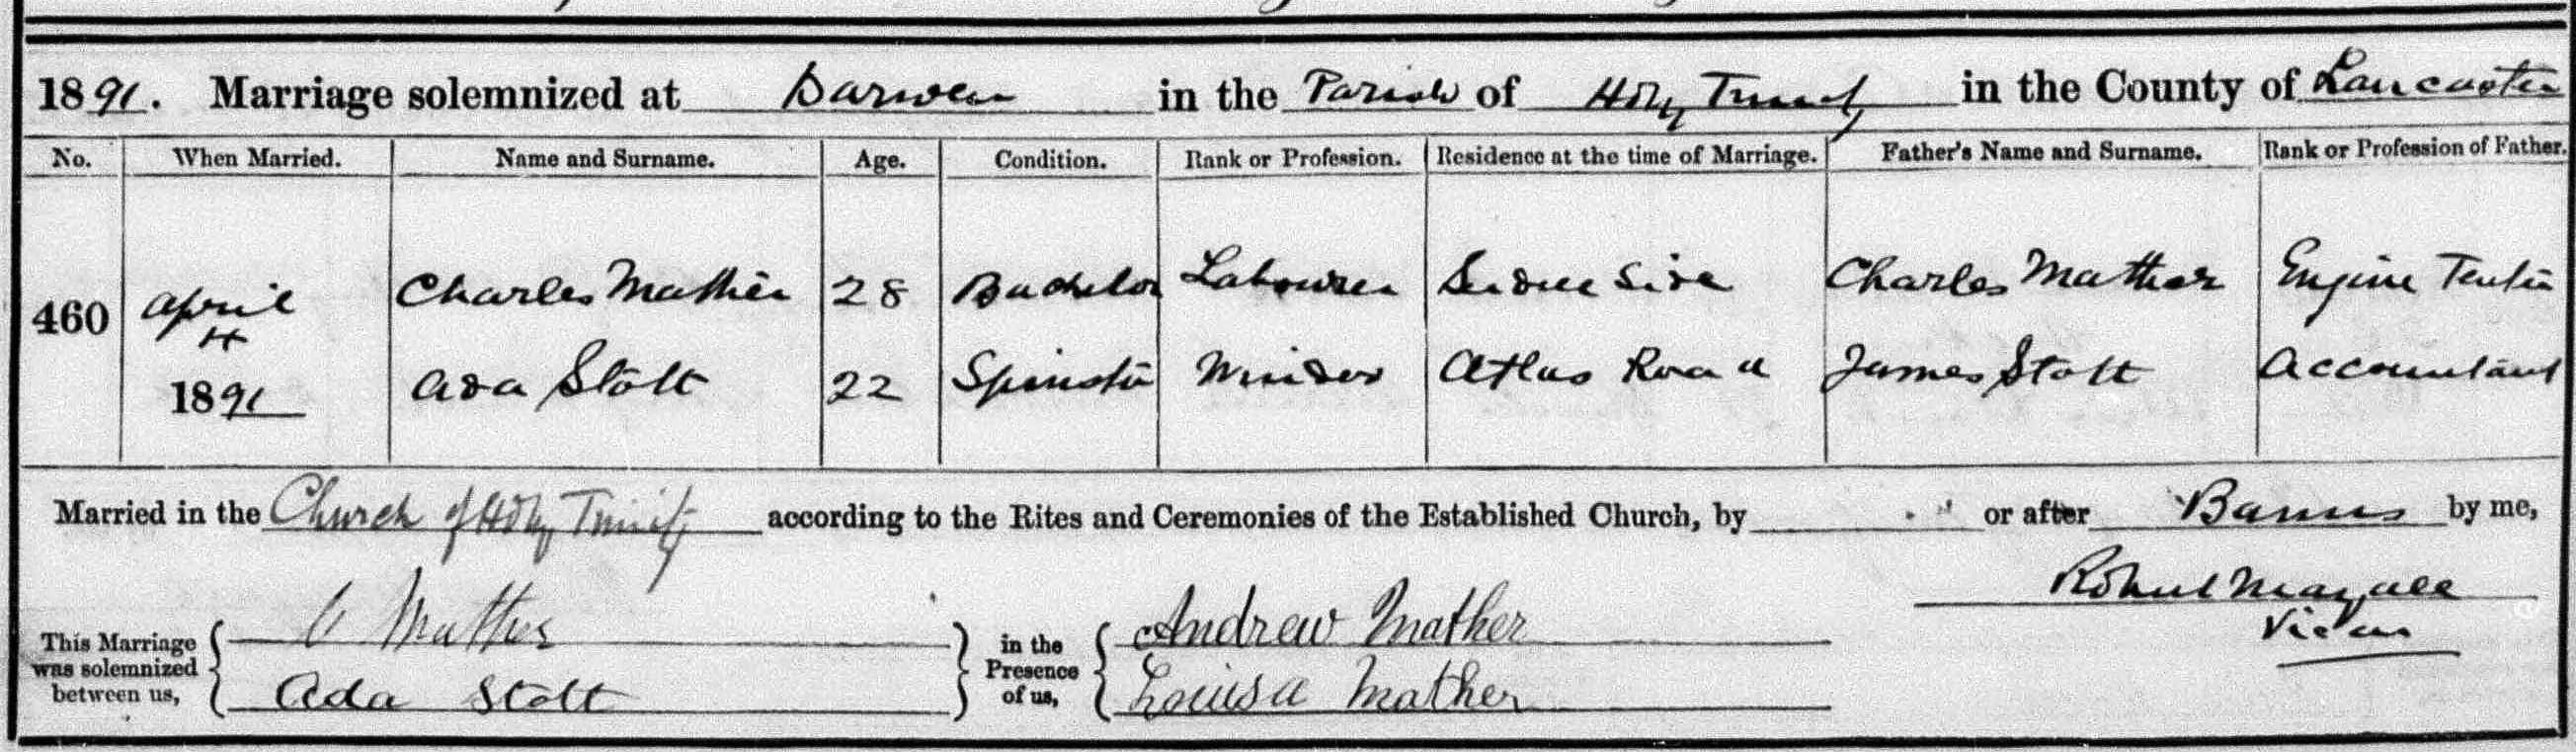 1891. Marriage solemnized at Darwen in the Parish of Holy Trinity in the County of Lancaster
No. When Married. Name and Surname. Age. Condition. Rank or Profession. Residence at the time of Marriage. Father's Name and Surname. Rank or Profession of Father.
460 April 4 1891 Charles Mather 28 Bachelor Labourer Side Charles Mather Engine Tenter
Ada Stott 22 Spinster Winder Atlas Road James Stott Accountant
Married in the Church of Holy Trinity according to the Rites and Ceremonies of the Established Church, by or after Banns by me,
Vicar
This Marriage was solemnized between us, C Mather in the Presence of us, Andrew Mather
Ada Stott Louisa Mather